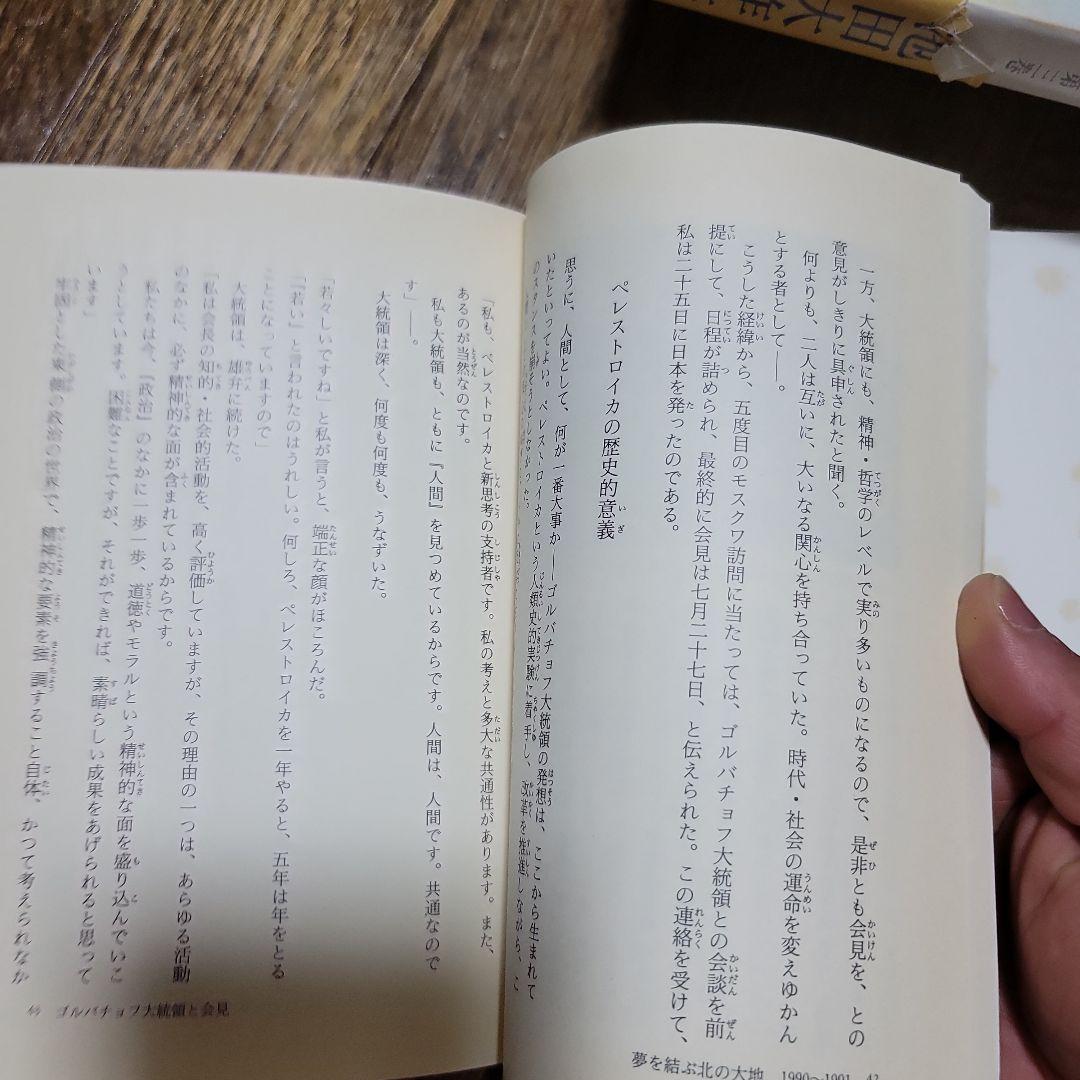 池田大作
第三巻
一方、大統領にも、精神・哲学のレベルで実り多いものになるので、是非とも会見を、との
意見がしきりに具申されたと聞く。
何よりも、二人は互いに、大いなる関心を持ち合っていた。時代・社会の運命を変えゆかん
とする者として――。
こうした経緯から、五度目のモスクワ訪問に当たっては、ゴルバチョフ大統領との会談を前
提にして、日程が詰められ、最終的に会見は七月二十七日、と伝えられた。この連絡を受けて、
私は二十五日に日本を発ったのである。
ペレストロイカの歴史的意義
思うに、人間として、何が一番大事か――ゴルバチョフ大統領の発想は、ここから生まれて
いたといってよい。ペレストロイカという人類史的実験に着手し、改革を推進しながら、こ
のスタンスを崩そうとしなかった。
夢を結ぶ北の大地 1990〜1991 42
「私も、ペレストロイカと新思考の支持者です。私の考えと多大な共通性があります。また、
あるのが当然なのです。
私も大統領も、ともに『人間』を見つめているからです。人間は、人間です。共通なので
す」――。
大統領は深く、何度も何度も、うなずいた。
「若々しいですね」と私が言うと、端正な顔がほころんだ。
「『若い』と言われたのはうれしい。何しろ、ペレストロイカを一年やると、五年は年をとる
ことになっていますので」
大統領は、雄弁に続けた。
「私は会長の知的・社会的活動を、高く評価していますが、その理由の一つは、あらゆる活動
のなかに、必ず精神的な面が含まれているからです。
私たちは今、『政治』のなかに一歩一歩、道徳やモラルという精神的な面を盛り込んでいこ
うとしています。困難なことですが、それができれば、素晴らしい成果をあげられると思って
います」
の政治の世界で、精神的な要素を強調すること自体、かつて考えられなか
ゴルバチョフ大統領と会見